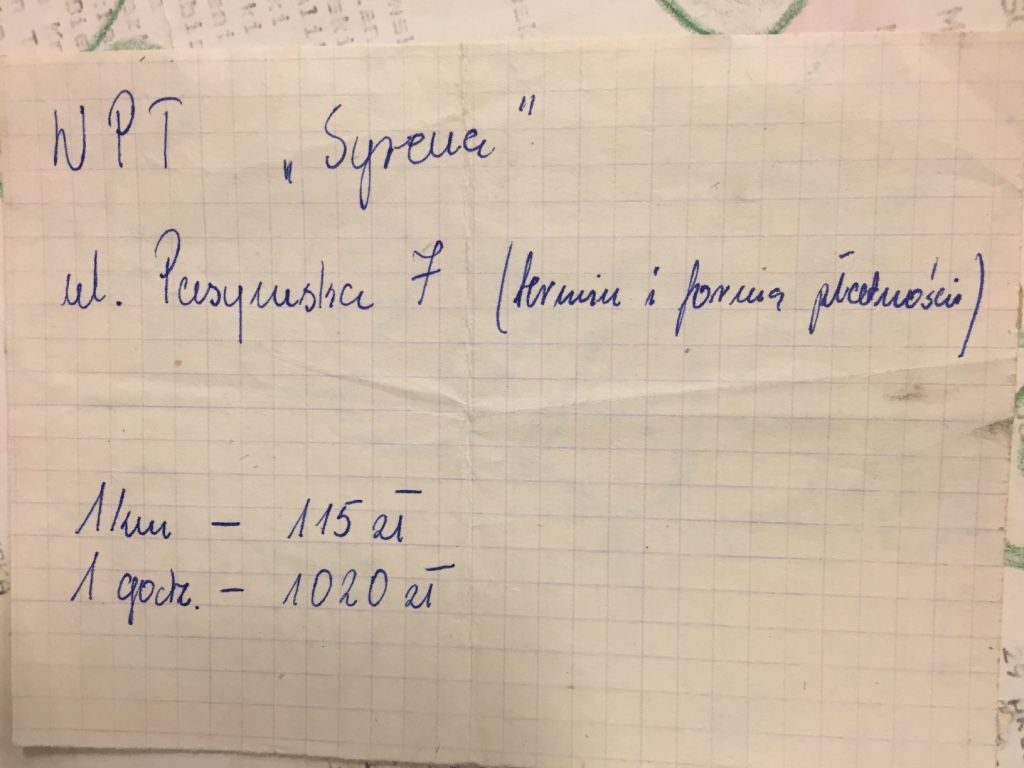 WPT „Syrena”
ul. 7 (termin i forma płatności)
1 km – 115 zł
1 godz. – 1020 zł